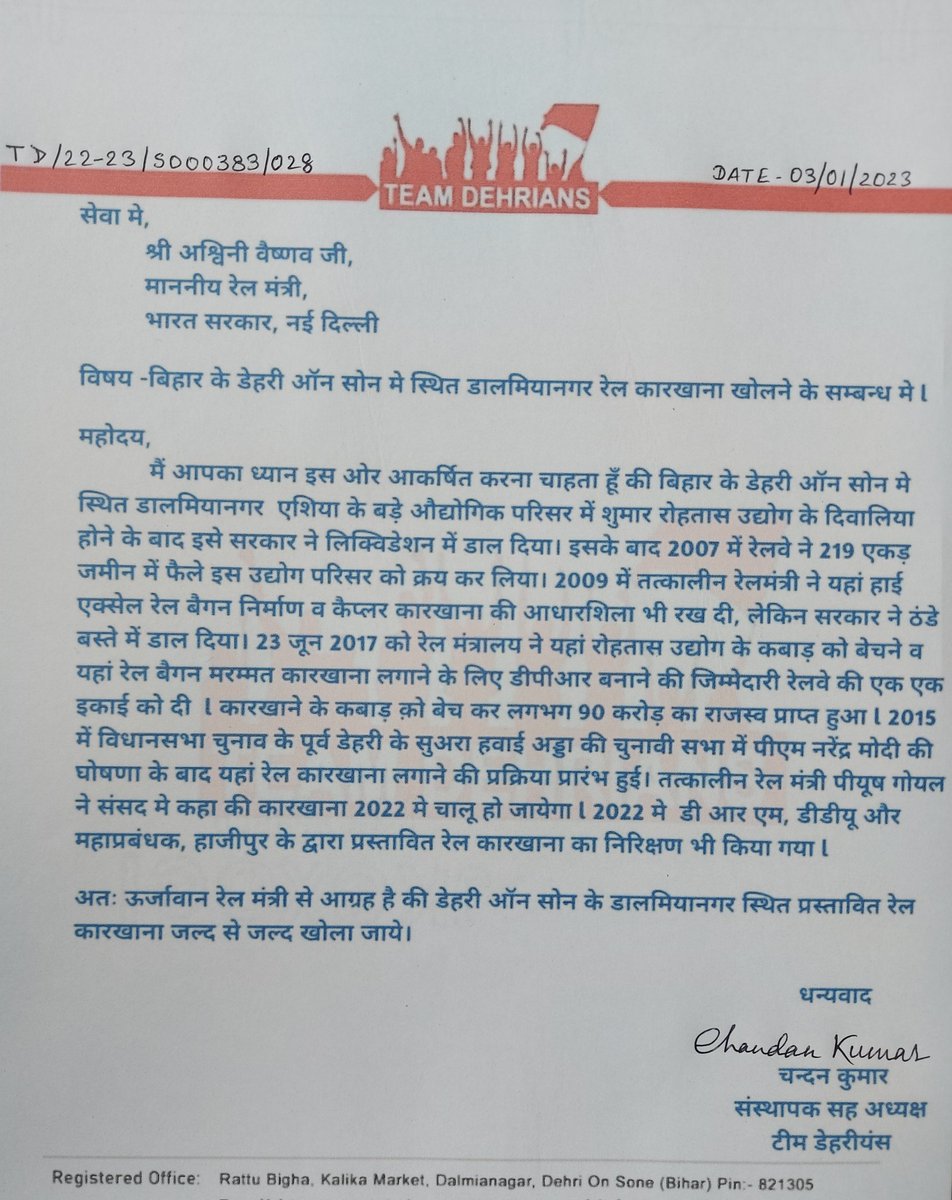 TD/22-23/S000383/028
DATE - 03/01/2023
TEAM DEHRIANS
सेवा मे,
श्री अश्विनी वैष्णव जी,
माननीय रेल मंत्री,
भारत सरकार, नई दिल्ली
विषय -बिहार के डेहरी ऑन सोन मे स्थित डालमियानगर रेल कारखाना खोलने के सम्बन्ध मे l
महोदय,
मैं आपका ध्यान इस ओर आकर्षित करना चाहता हूँ की बिहार के डेहरी ऑन सोन मे
स्थित डालमियानगर एशिया के बड़े औद्योगिक परिसर में शुमार रोहतास उद्योग के दिवालिया
होने के बाद इसे सरकार ने लिक्विडेशन में डाल दिया। इसके बाद 2007 में रेलवे ने 219 एकड़
जमीन में फैले इस उद्योग परिसर को क्रय कर लिया। 2009 में तत्कालीन रेलमंत्री ने यहां हाई
एक्सेल रेल बैगन निर्माण व कैप्लर कारखाना की आधारशिला भी रख दी, लेकिन सरकार ने ठंडे
बस्ते में डाल दिया। 23 जून 2017 को रेल मंत्रालय ने यहां रोहतास उद्योग के कबाड़ को बेचने व
यहां रेल बैगन मरम्मत कारखाना लगाने के लिए डीपीआर बनाने की जिम्मेदारी रेलवे की एक एक
इकाई को दी l कारखाने के कबाड़ क़ो बेच कर लगभग 90 करोड़ का राजस्व प्राप्त हुआ l 2015
में विधानसभा चुनाव के पूर्व डेहरी के सुअरा हवाई अड्डा की चुनावी सभा में पीएम नरेंद्र मोदी की
घोषणा के बाद यहां रेल कारखाना लगाने की प्रक्रिया प्रारंभ हुई। तत्कालीन रेल मंत्री पीयूष गोयल
ने संसद मे कहा की कारखाना 2022 मे चालू हो जायेगा l 2022 मे डी आर एम, डीडीयू और
महाप्रबंधक, हाजीपुर के द्वारा प्रस्तावित रेल कारखाना का निरिक्षण भी किया गया l
अतः ऊर्जावान रेल मंत्री से आग्रह है की डेहरी ऑन सोन के डालमियानगर स्थित प्रस्तावित रेल
कारखाना जल्द से जल्द खोला जाये।
धन्यवाद
Chandan Kumar
चन्दन कुमार
संस्थापक सह अध्यक्ष
टीम डेहरीयंस
Registered Office: Rattu Bigha, Kalika Market, Dalmianagar, Dehri On Sone (Bihar) Pin:- 821305